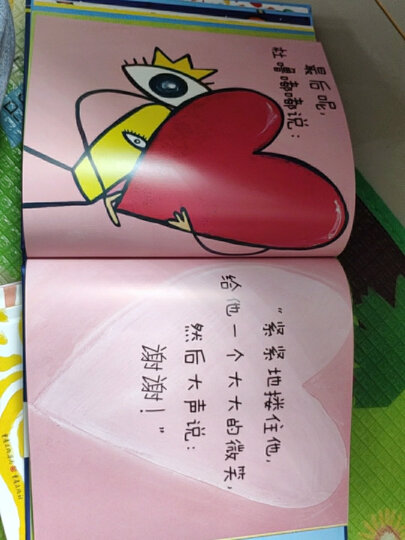 最后呢，
杜噜嘟嘟说：
“紧紧地搂住他，
给他一个大大的微笑，
然后大声说：
谢谢！”